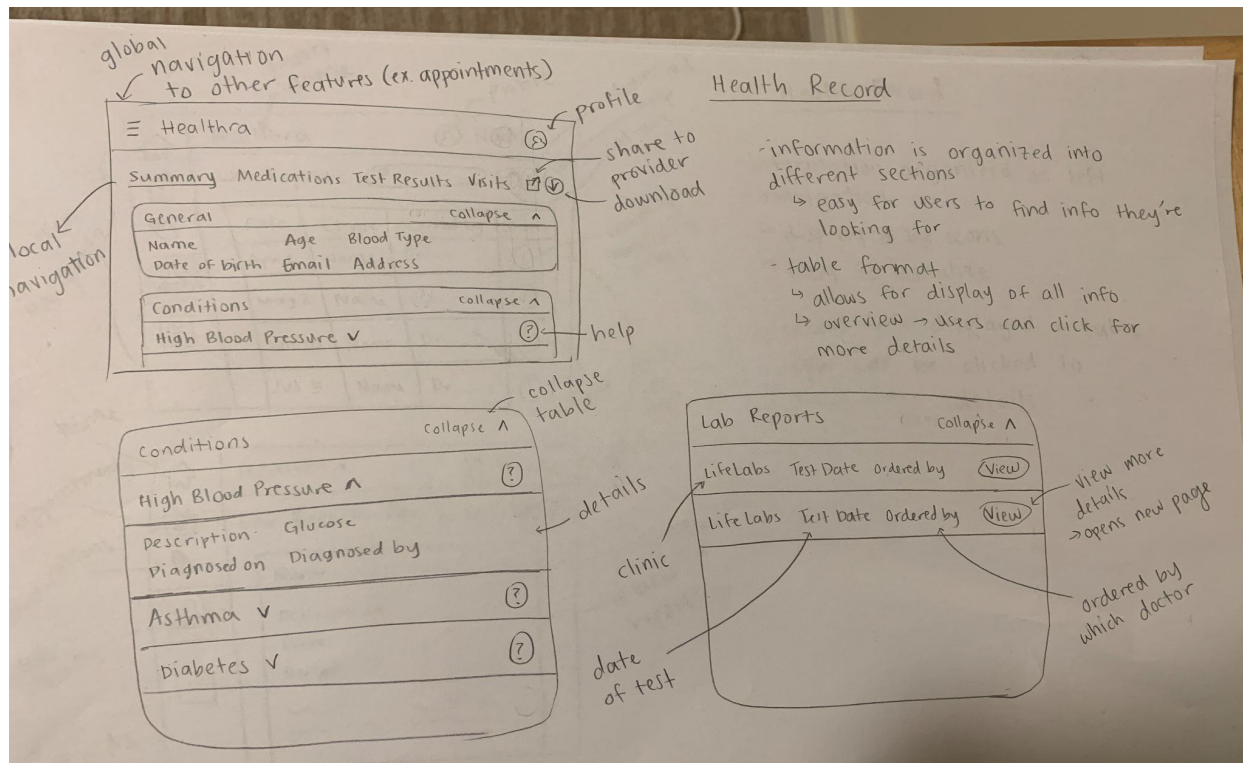 global
navigation
to other features (ex. appointments)
☰ Healthra
profile
Summary Medications Test Results Visits
share to
provider
download
local
navigation
General collapse ^
Name Age Blood Type
Date of birth Email Address
Conditions collapse ^
High Blood Pressure v ?
help
Health Record
-information is organized into
different sections
↳ easy for users to find info they're
looking for
- table format
↳ allows for display of all info
↳ overview → users can click for
more details
collapse
table
Conditions collapse ^
High Blood Pressure ^ ?
Description Glucose
Diagnosed on Diagnosed by
details
Asthma v ?
Diabetes v ?
Lab Reports collapse ^
LifeLabs Test Date Ordered by View
LifeLabs Test Date Ordered by View
view more
details
→ opens new page
clinic
date
of test
ordered by
which doctor